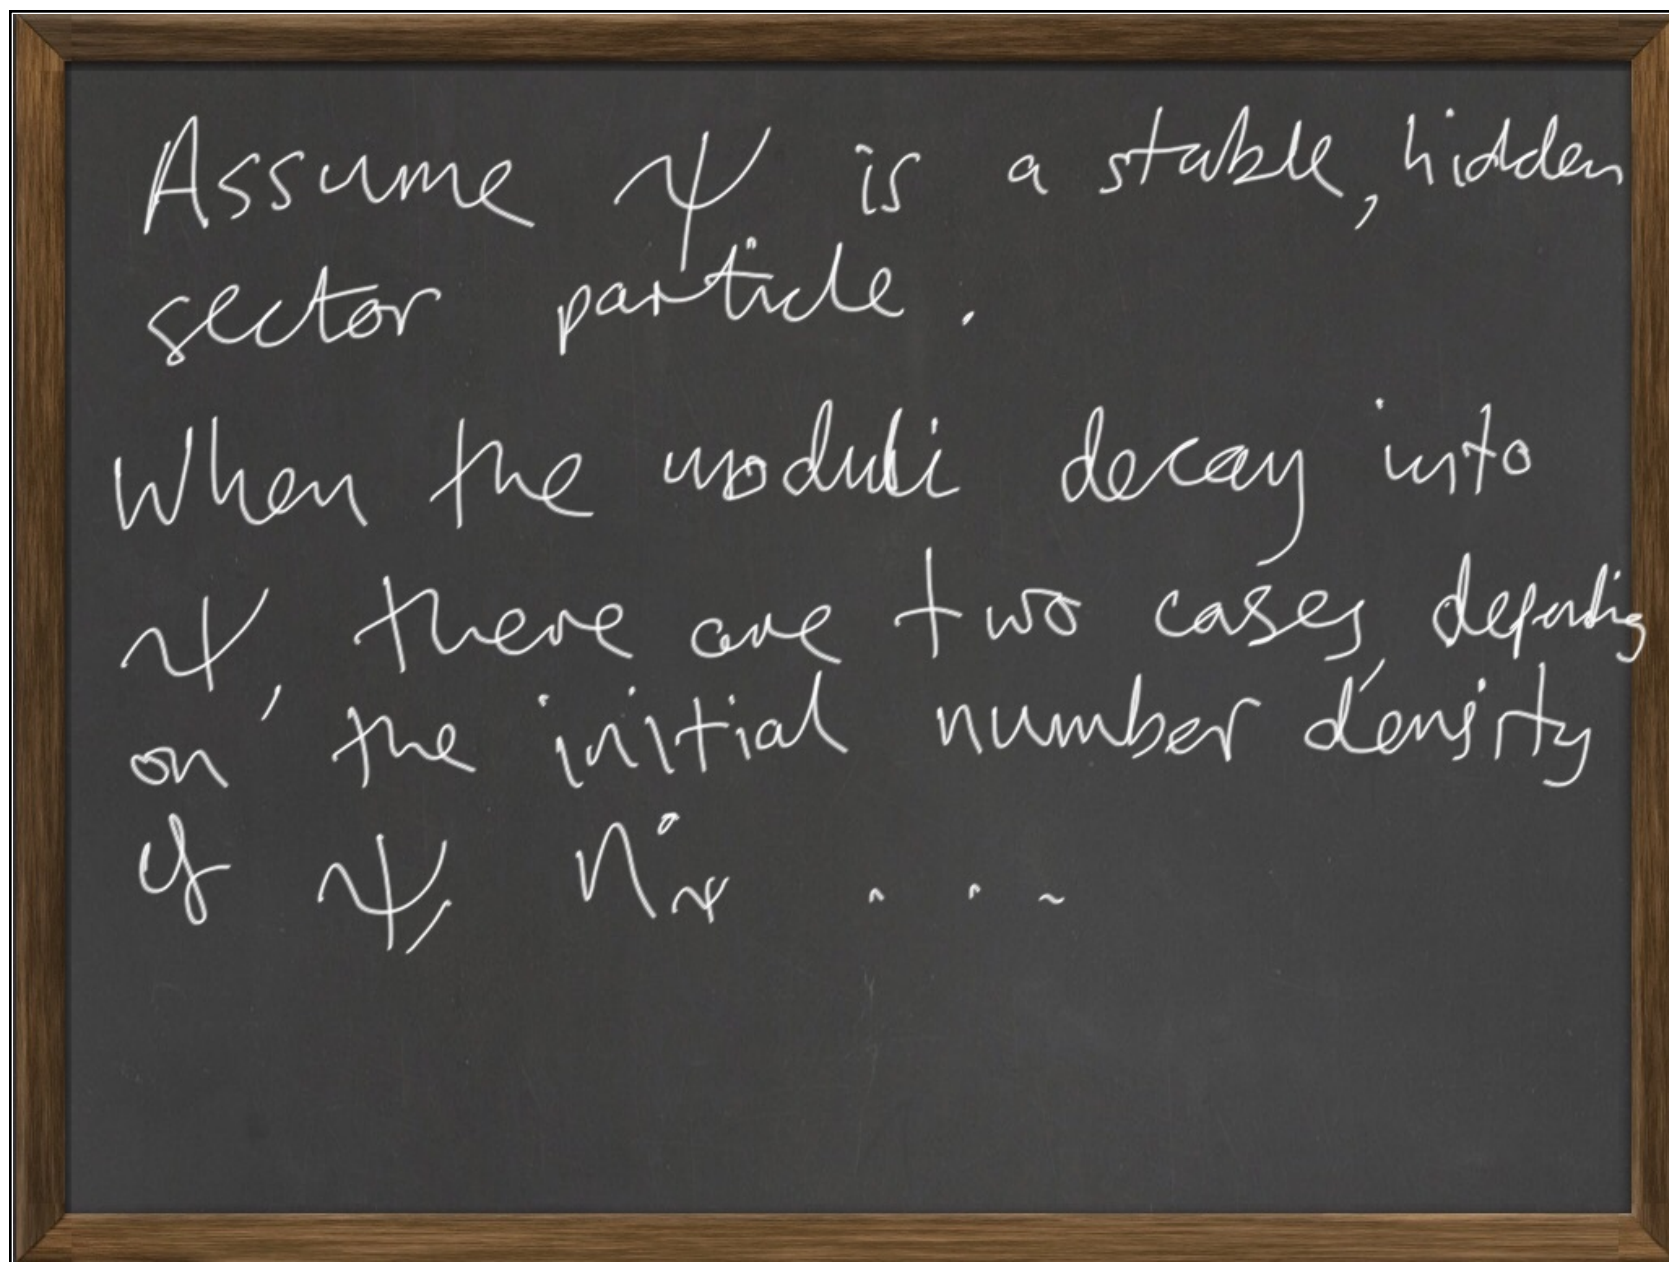 Assume ψ is a stable, hidden
sector particle.
When the moduli decay into
ψ, there are two cases, depending
on the initial number density
of ψ, n°ψ ...